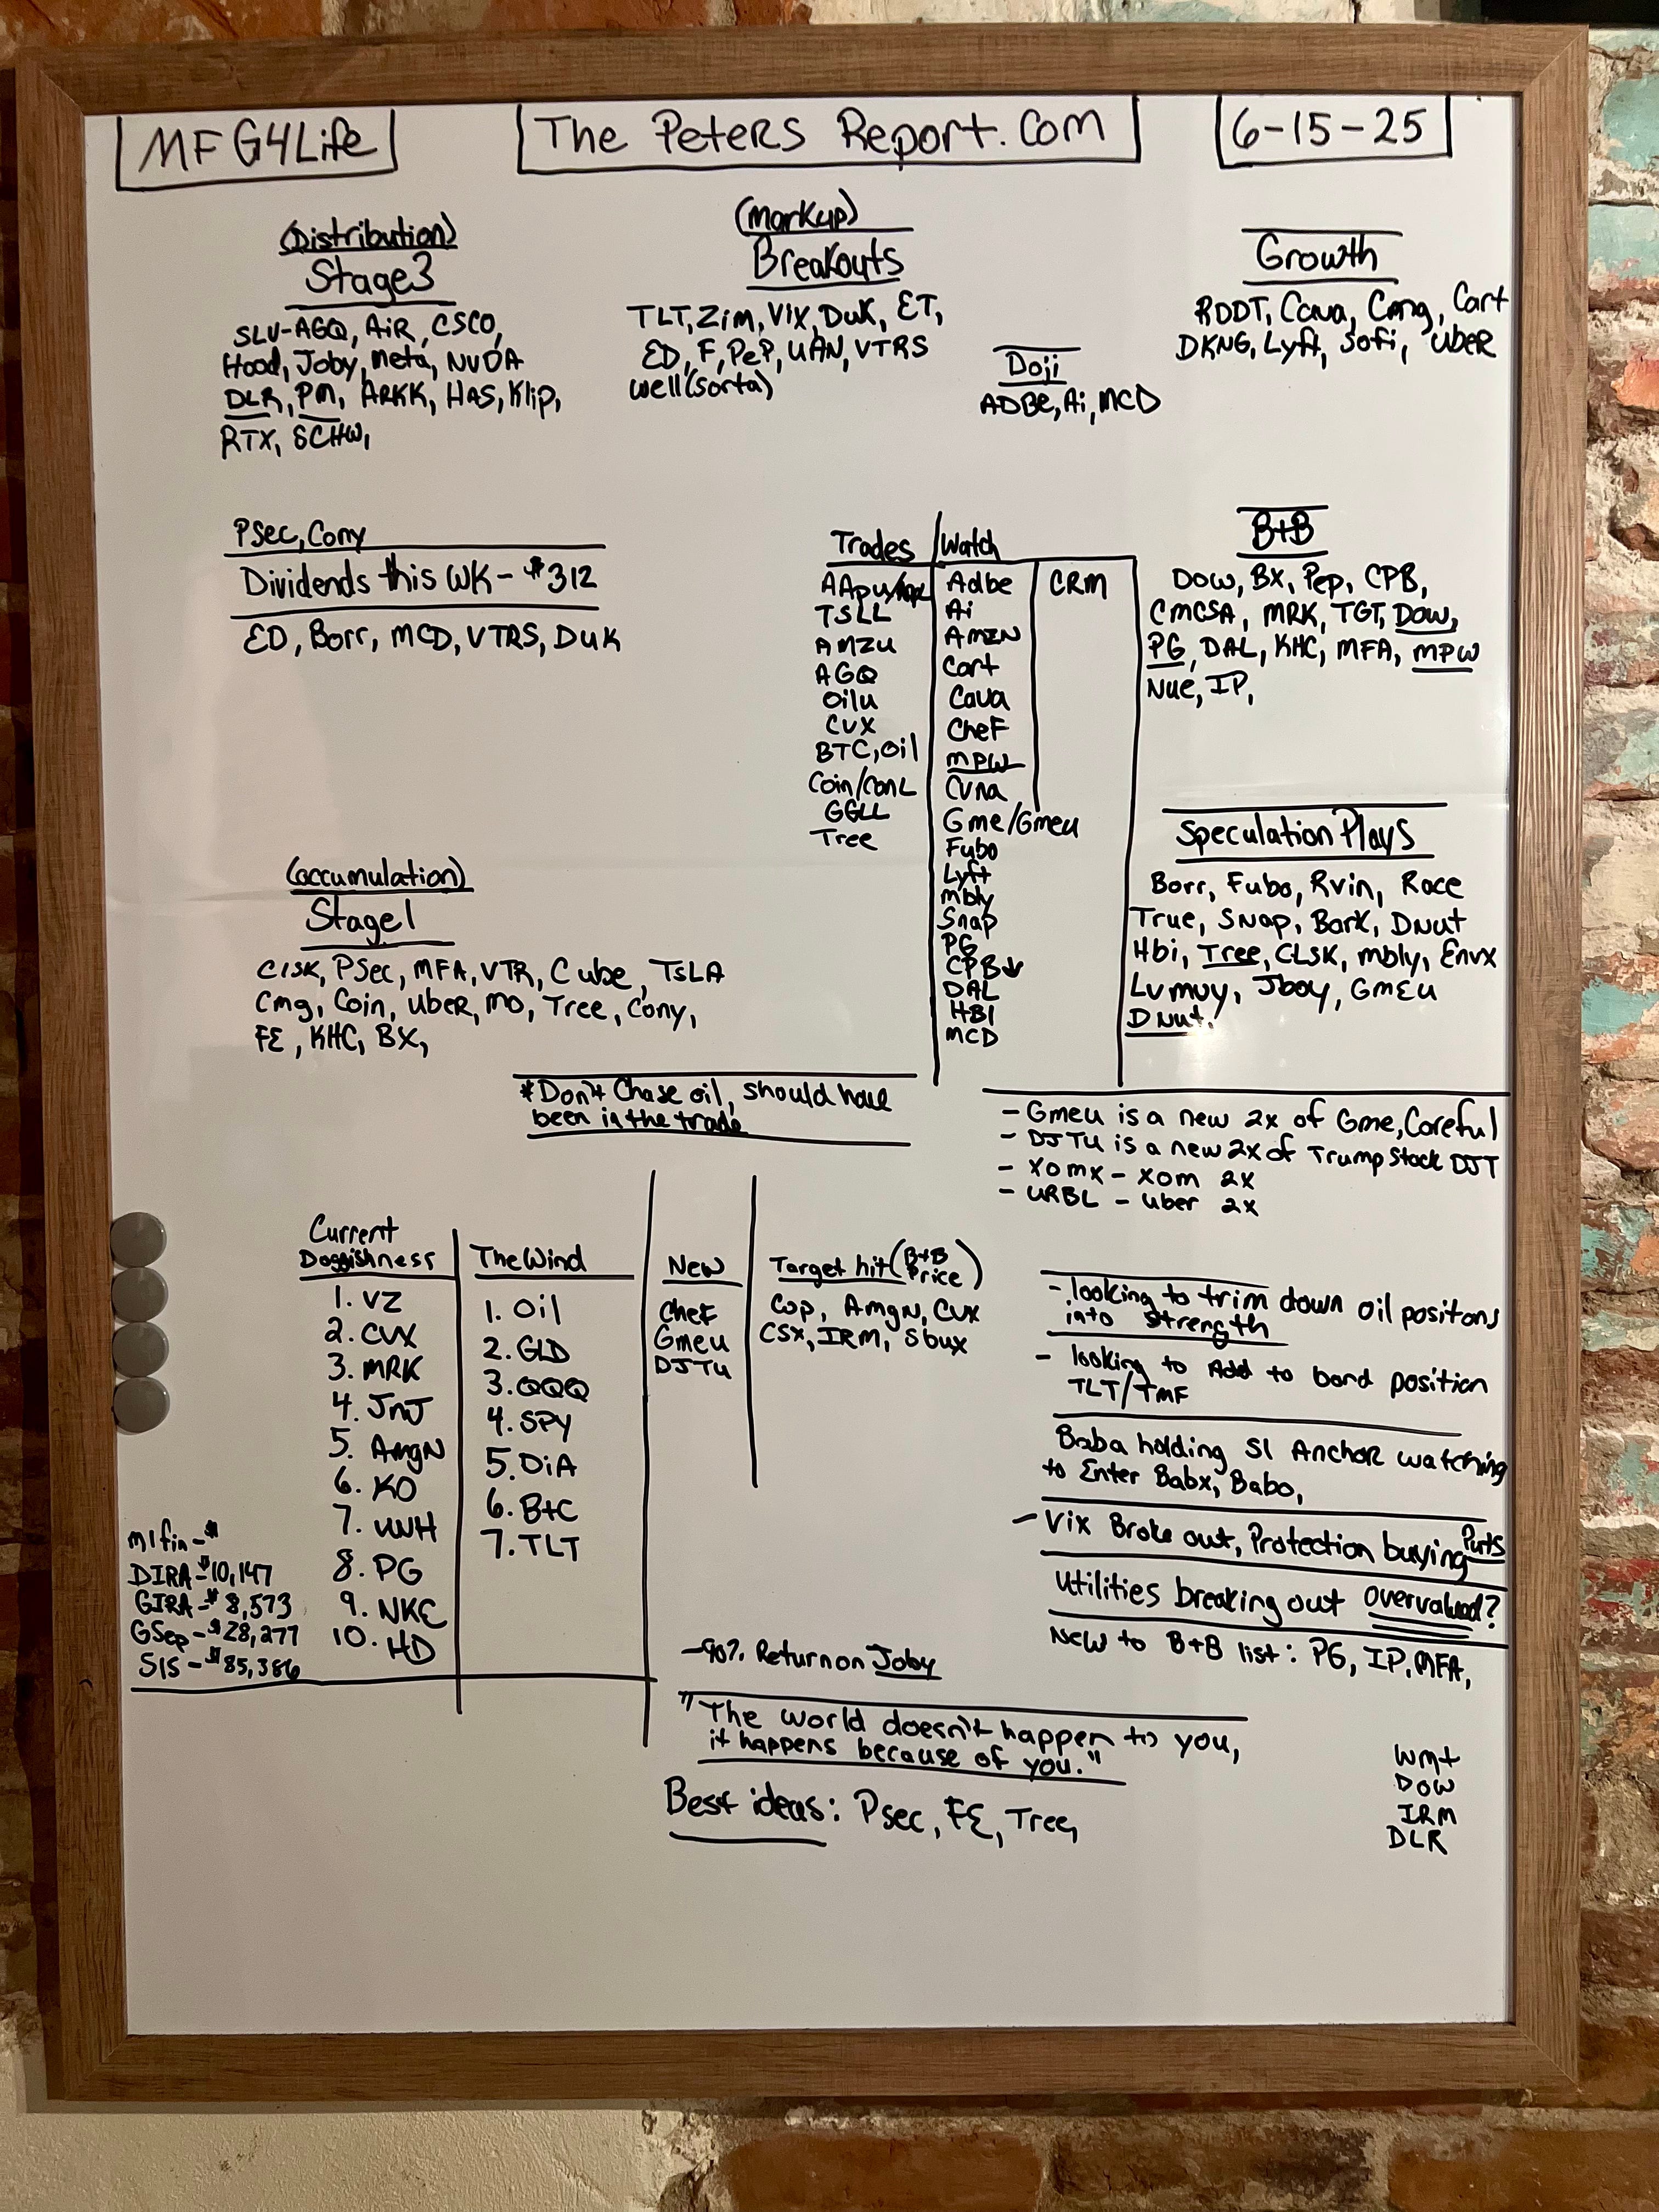 MFG4Life
The Peters Report.Com
6-15-25
(Distribution)
Stage3
SLV-AGQ, AiR, CSCO,
Hood, Joby, Meta, NVDA
DLR, PM, ARKK, HAS, Klip,
RTX, SCHW,
(Markup)
Breakouts
TLT, Zim, Vix, Duk, ET,
ED, F, PeP, UAN, VTRS
Well(sorta)
Doji
ADBe, Ai, MCD
Growth
RDDT, Cava, Cmg, Cart
DKNG, Lyft, Sofi, UbeR
PSec, Cony
Dividends this WK- $312
ED, Borr, MCD, VTRS, Duk
Trades
AApu/
TSLL
AMZU
AGQ
Oilu
CVX
BTC, Oil
Coin/ConL
GGLL
Tree
Watch
Adbe
Ai
AMZN
Cart
Cava
Chef
MPW
Cvna
Gme/Gmeu
Fubo
Lyft
Mbly
Snap
PG
CPB↓
DAL
HBI
MCD
CRM
B+B
Dow, BX, Pep, CPB,
CMCSA, MRK, TGT, Dow,
PG, DAL, KHC, MFA, MPW
Nue, IP,
Speculation Plays
Borr, Fubo, Rvin, Race
True, SNap, Bark, DNut
Hbi, Tree, CLSK, mbly, Envx
Lvmuy, Jboy, GMEU
DNut,
(accumulation)
Stage1
ClSK, PSec, MFA, VTR, Cube, TSLA
Cmg, Coin, UbeR, MO, Tree, Cony,
FE, KHC, BX,
*Don't Chase oil, should have
been in the trade
- Gmeu is a new 2x of Gme, Careful
- DJTU is a new 2x of Trump Stock DJT
- XOMX - XOM 2X
- URBL - Uber 2X
Current
Doggishness
1. VZ
2. CVX
3. MRK
4. JNJ
5. AmgN
6. KO
7. UNH
8. PG
9. NKE
10. HD
The Wind
1. Oil
2. GLD
3. QQQ
4. SPY
5. DiA
6. BtC
7. TLT
New
Chef
Gmeu
DJTU
Target hit (B+B Price)
Cop, AmgN, CVX
CSX, IRM, Sbux
- looking to trim down oil positons
into strength
- looking to Add to bond position
TLT/TMF
Baba holding S1 Anchor watching
to Enter Babx, Babo,
- Vix Broke out, Protection buying Puts
Utilities breaking out overvalued?
New to B+B list: PG, IP, MFA,
M1fin-$
DIRA-$10,147
GIRA-$8,573
GSep-$28,277
SIS-$85,386
-90% Return on Joby
"The world doesn't happen to you,
it happens because of you."
Best ideas: Psec, FE, Tree,
Wmt
Dow
IRM
DLR